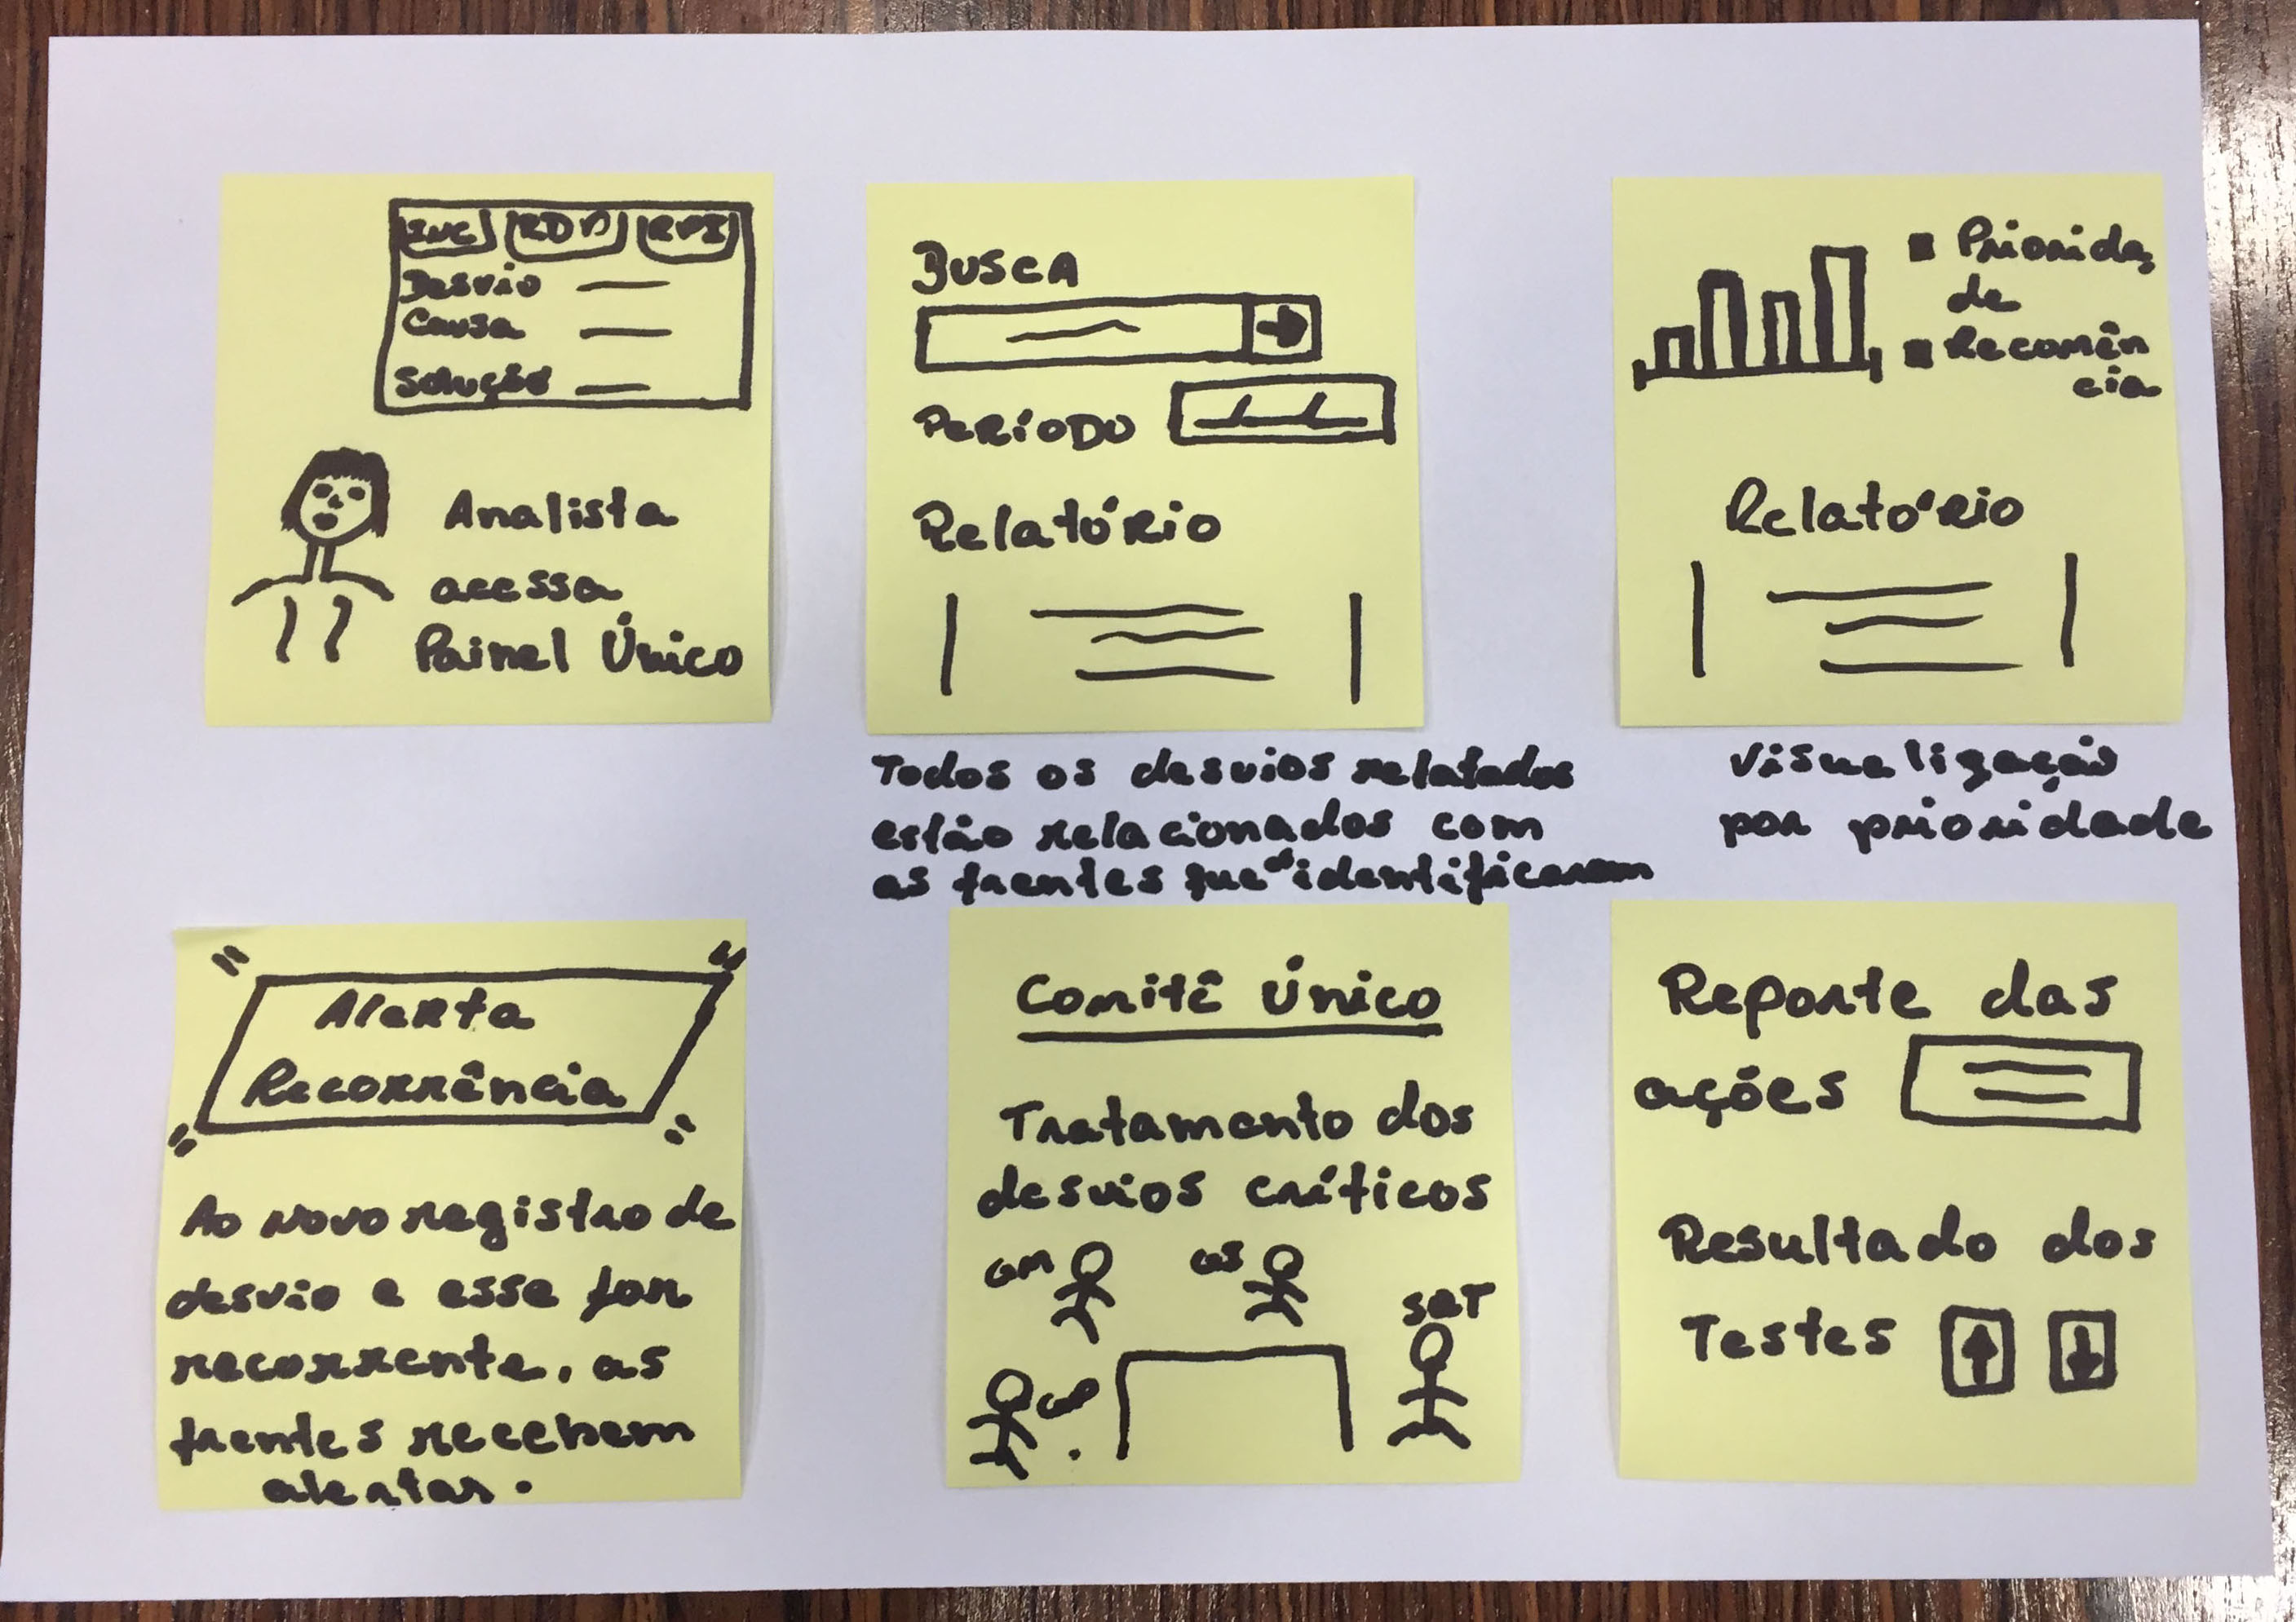 INC RDM RPI
Desvio
Causa
Solução
Analista
acessa
Painel Único
BUSCA
PERÍODO
Relatório
Todos os desvios relatados
estão relacionados com
as frentes que identificaram
Priorida,
de
Recorrên
cia
Relatório
Visualização
por prioridade
Alerta
Recorrência
Ao novo registro de
desvio e esse for
recorrente, as
frentes recebem
alertas.
Comitê Único
Tratamento dos
desvios críticos
GM GS
SQT
GP
Reporte das
ações
Resultado dos
Testes